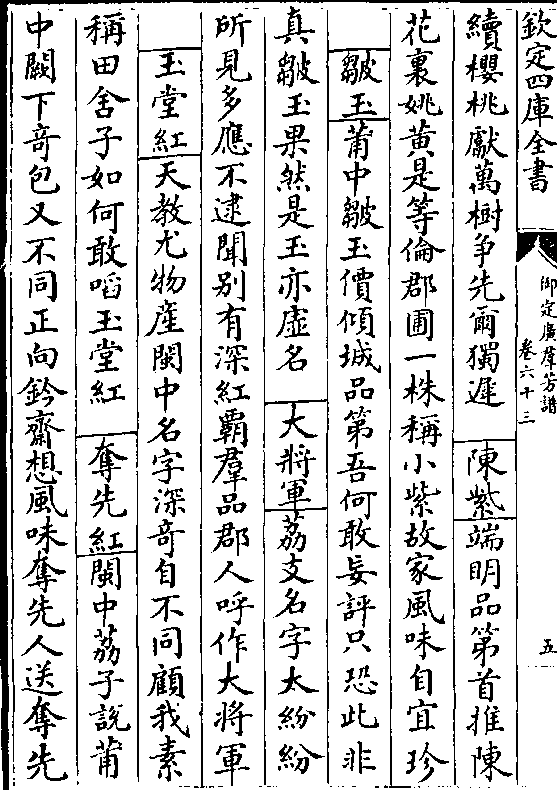 欽定四庫全書
御定廣羣芳譜
卷六十三
五
續櫻桃獻萬樹爭先爾獨遲 陳紫 端明品第首推陳
花裏姚黃是等倫郡圃一株稱小紫故家風味自宜珍
皺玉 莆中皺玉價傾城品第吾何敢妄評只恐此非
真皺玉果然是玉亦虛名 大將軍 荔支名字太紛紛
所見多應不逮聞别有深紅霸羣品郡人呼作大將軍
玉堂紅 天教尤物產閩中名字深竒自不同顧我素
稱田舍子如何敢啗玉堂紅 奪先紅 閩中荔子說莆
中闕下竒包又不同正向鈐齋想風味奪先人送奪先